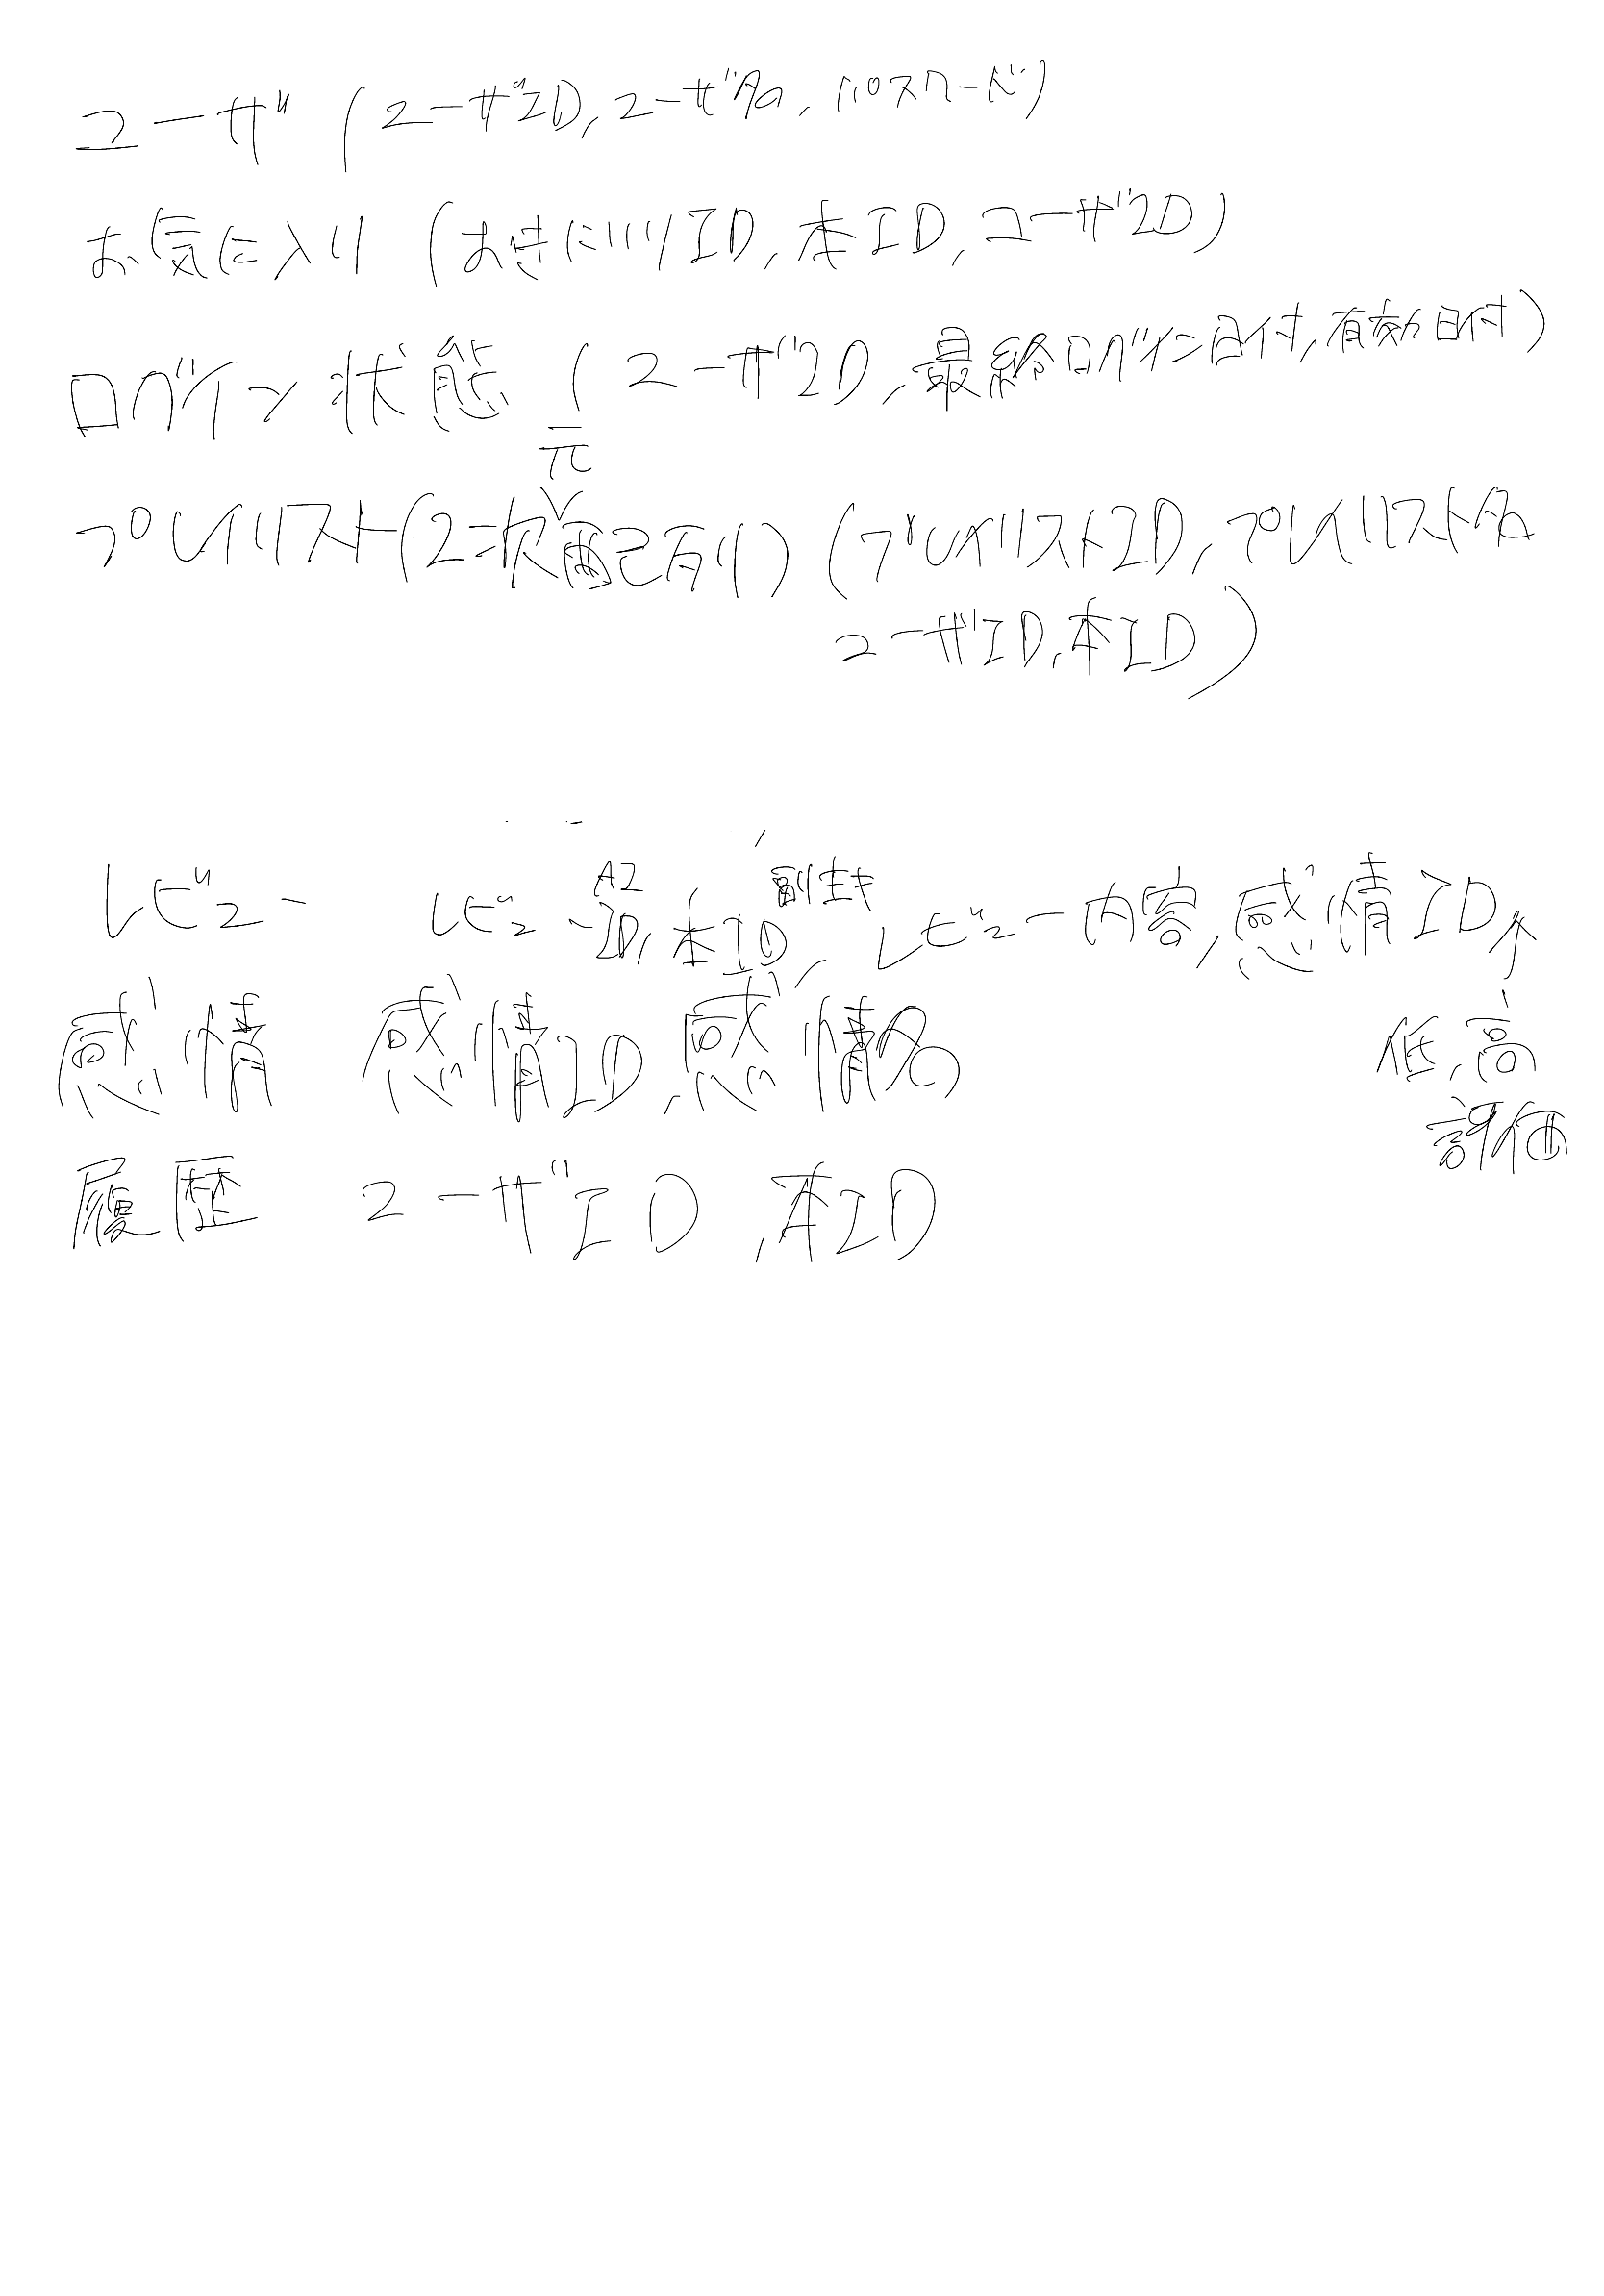 ユーザ (ユーザID, ユーザ名, パスワード)
お気に入り (おきにいりID, 本ID, ユーザID)
ログイン状態 (ユーザID, 最終ログイン日付, 有効日付)
プレイリスト(2次元配列) (プレイリストID, プレイリスト名
ユーザID, 本ID)
レビュー レビューID, 本ID, レビュー内容, 感情ID↑
AI 副主キ
感情 感情ID, 感情名
低, 高
評価
履歴 ユーザID, 本ID